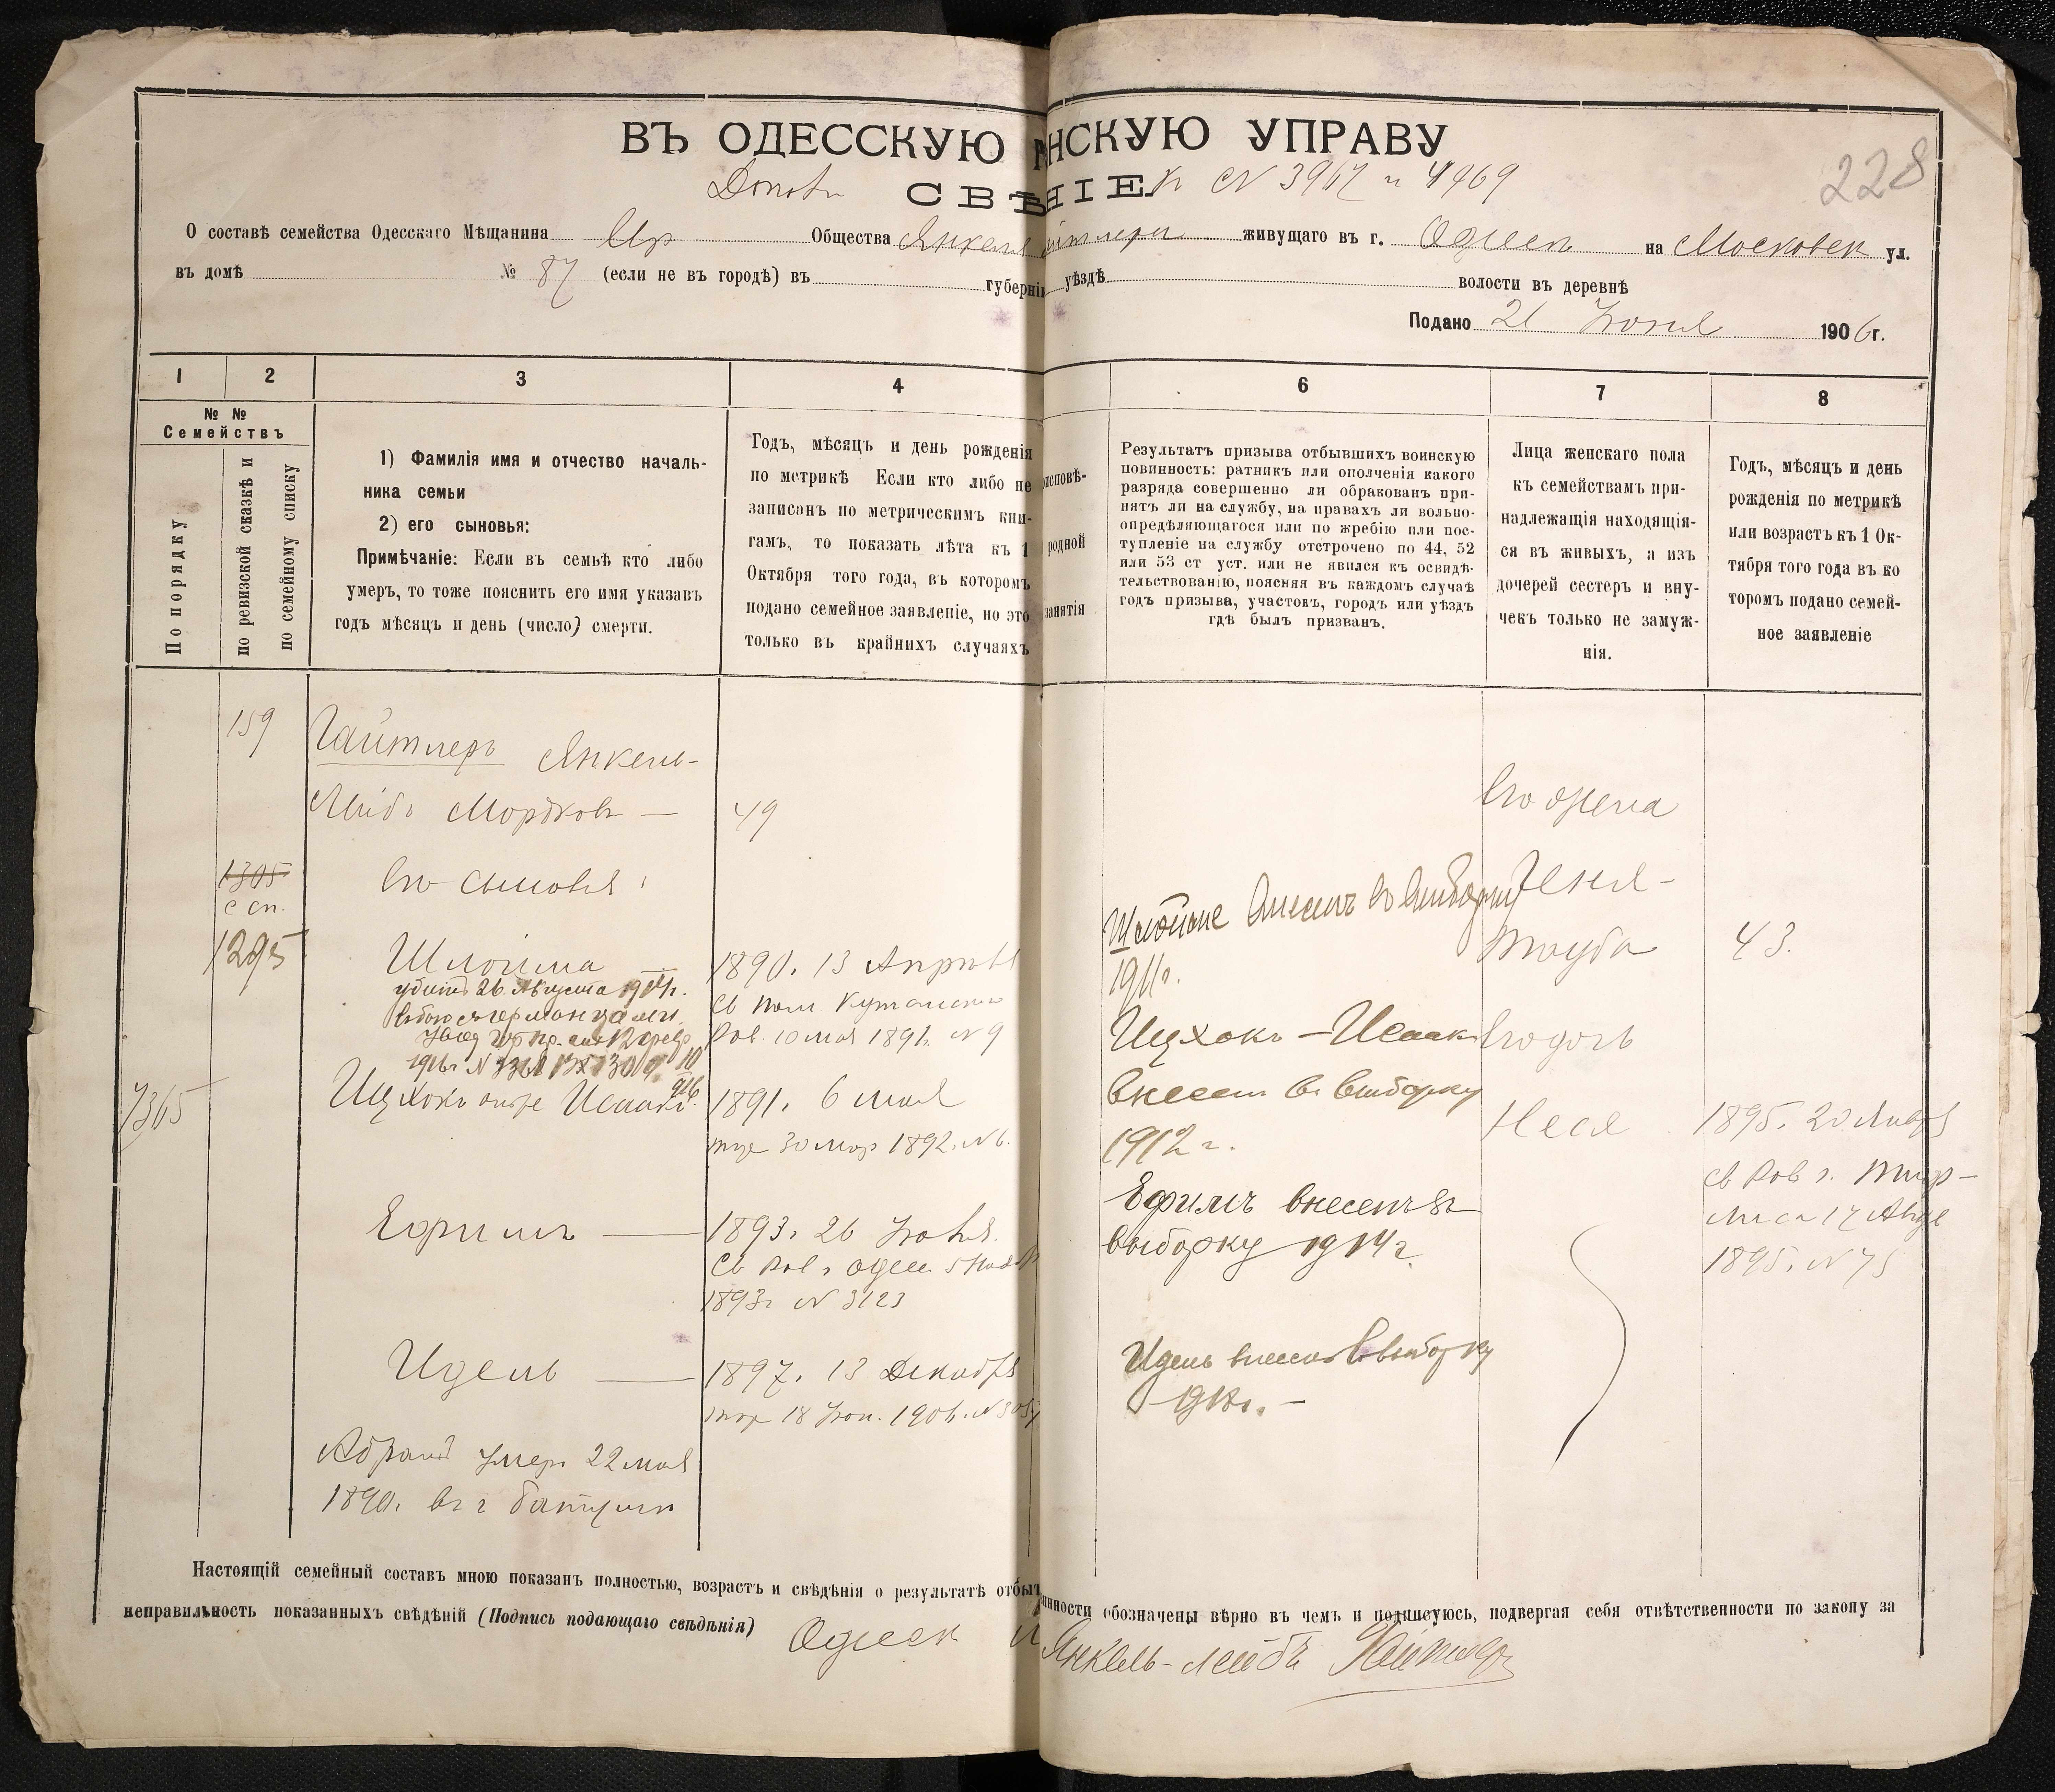 ВЪ ОДЕССКУЮ НСКУЮ УПРАВУ
СВѢ НІЕ № 3967 и 4969
228
О составѣ семейства Одесскаго Мѣщанина Общества Янкеля живущаго въ г. Одессѣ на Московск ул.
въ домѣ № 87 (если не въ городѣ) въ губерніи уѣздѣ волости въ деревнѣ
Подано 21 Іюня 1906 г.
1 2 3 4 6 7 8
№ №
Семействъ
По порядку
по ревизской сказкѣ и
по семейному списку
1) Фамилія имя и отчество началь-
ника семьи
2) его сыновья:
Примѣчаніе: Если въ семьѣ кто либо
умеръ, то тоже пояснить его имя указавъ
годъ мѣсяцъ и день (число) смерти.
Годъ, мѣсяцъ и день рожденія
по метрикѣ Если кто либо не
записанъ по метрическимъ кни-
гамъ, то показать лѣта къ 1
Октября того года, въ которомъ
подано семейное заявленіе, но это
только въ крайнихъ случаяхъ
исповѣ-
родной
занятія
Результатъ призыва отбывшихъ воинскую
повинность: ратникъ или ополченія какого
разряда совершенно ли обракованъ при-
нятъ ли на службу, на правахъ ли вольно-
опредѣляющагося или по жребію или пос-
тупленіе на службу отстрочено по 44, 52
или 53 ст уст. или не явился къ освидѣ-
тельствованію, поясняя въ каждомъ случаѣ
годъ призыва, участокъ, городъ или уѣздъ
гдѣ былъ призванъ.
Лица женскаго пола
къ семействамъ при-
надлежащія находящія-
ся въ живыхъ, а изъ
дочерей сестеръ и вну-
чекъ только не замуж-
нія.
Годъ, мѣсяцъ и день
рожденія по метрикѣ
или возрастъ къ 1 Ок-
тября того года въ ко
торомъ подано семей-
ное заявленіе
159 Гайтлеръ Янкель-
Лейбъ Мордковъ — 49
1305
с сп.
1295
Его сыновья:
Шлойма — 1890. 13 Апрѣля
убитъ 26 Августа 1914 г.
въ бою съ германцами
Рав. 10 мая 1891. № 9
7365
Ицхокъ онъ же Исаакъ 1891. 6 мая
тоже 30 мар 1892. № 6.
Ефимъ — 1893. 26 Іюня.
Св Рав г. Одес. 5 Нояб
1893 г № 3123
Идель — 1897. 13 Декабря
тоже 18 Іюн. 1906. №
Абрамъ умеръ 22 мая
1890. въ г Батумѣ
Шлойме внесенъ въ выборку
1911 г.
Ицхокъ-Исаакъ
внесенъ въ выборку
1912 г.
Ефимъ внесенъ въ
выборку 1914 г.
Идель внесенъ въ выборку
1918 г. —
Его жена
Геня-
Тауба 43.
Его дочь
Неся 1895. 20 Январ
Св Рав г. Тир-
1895. № 75
Настоящій семейный составъ мною показанъ полностью, возрастъ и свѣдѣнія о результатѣ отбыт инности обозначены вѣрно въ чемъ и подписуюсь, подвергая себя отвѣтственности по закону за
неправильность показанныхъ свѣдѣній (Подпись подающаго свѣдѣнія)
Одесск Янкель-Лейбъ Гайтлеръ